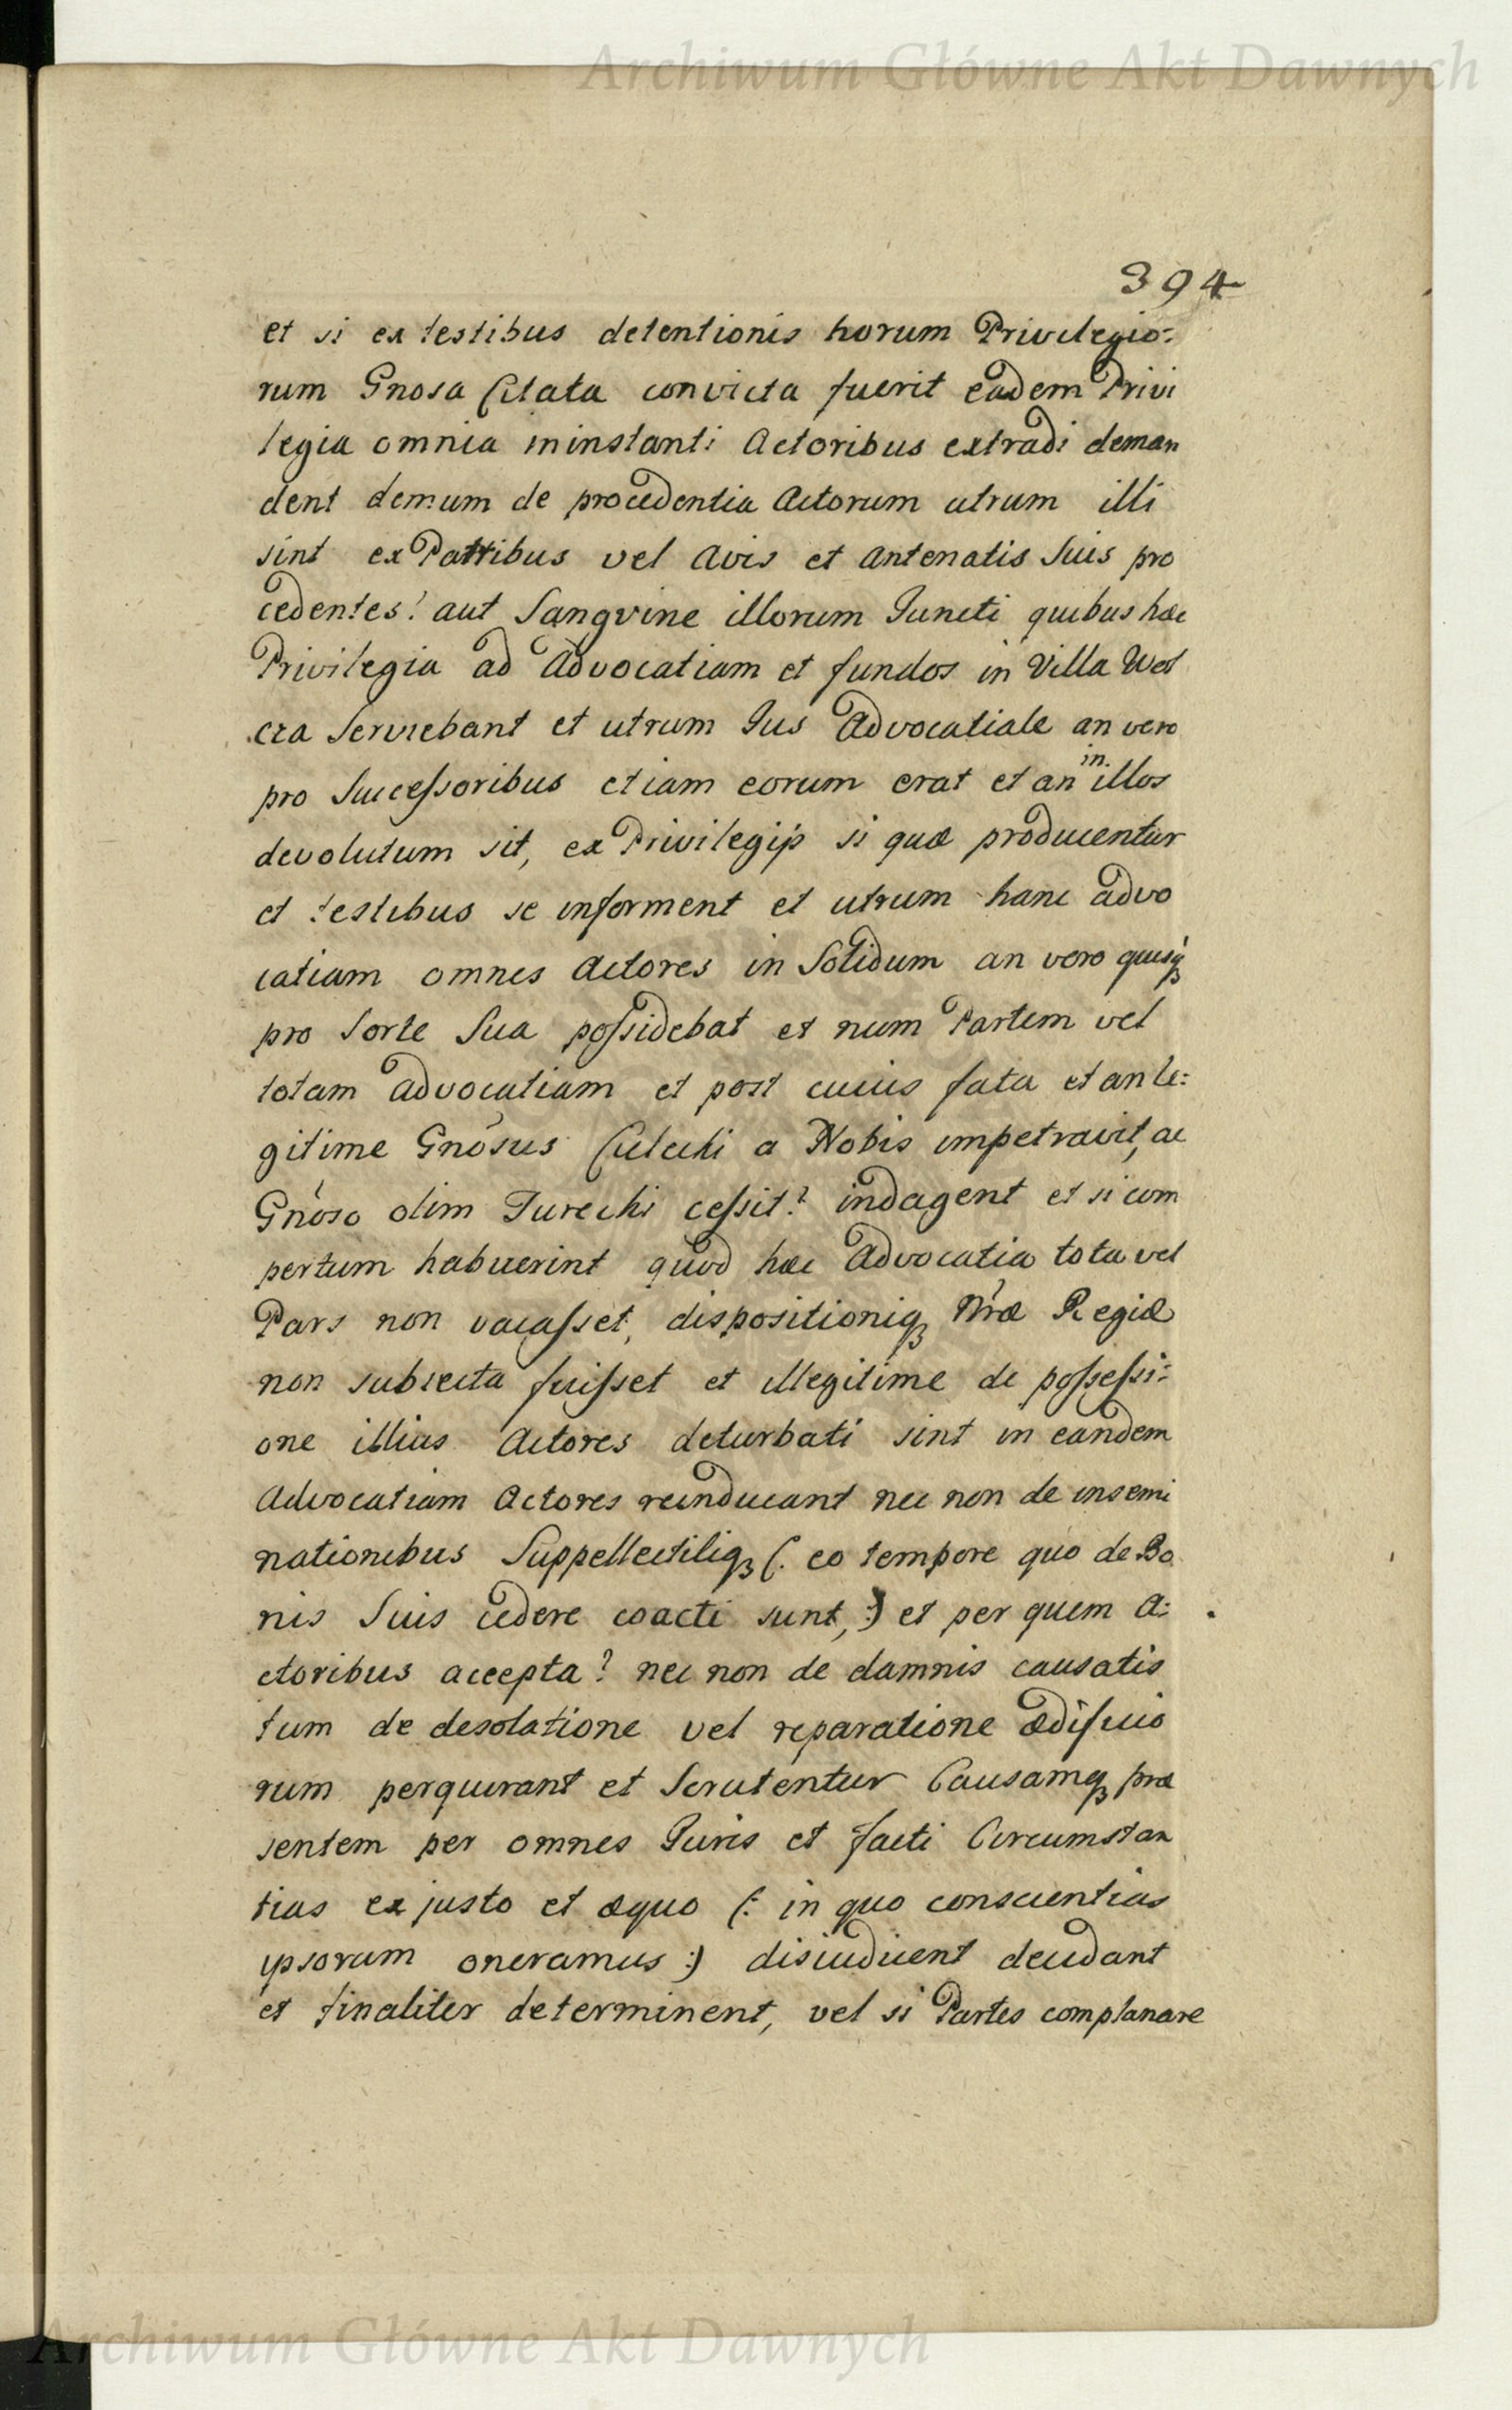 Archiwum Główne Akt Dawnych
394
et si ex testibus detentionis horum Privilegio-
rum Gnosa Citata convicta fuerit eadem Privi
legia omnia ininstanti Actoribus extradi deman
dent demum de procedentia Actorum utrum illi
sint ex Patribus vel Avis et Antenatis Suis pro
cedentes? aut Sangvine illorum Juncti quibus hæc
Privilegia ad Advocatiam et fundos in Villa Wol
cza Serviebant et utrum Jus Advocatiale an vero
pro Successoribus etiam eorum erat et an in illos
devolutum sit, ex Privilegijs si quæ producentur
et testibus se informent et utrum hanc advo
catiam omnes Actores in Solidum an vero quisq
pro Sorte Sua possidebat et num Partem vel
totam advocatiam et post cuius fata et an le:
gitime Gnosus a Nobis impetravit, ac
Gnoso olim Turecki cessit? indagent et si com
pertum habuerint quod hæc Advocatia tota vel
Pars non vacasset, dispositioniq Nræ Regiæ
non subiecta fuisset et illegitime de possessi:
one illius Actores deturbati sint in eandem
Advocatiam Actores reinducant nec non de insemi
nationibus Suppellectiliq (: eo tempore quo de Bo
nis Suis cedere coacti sunt, :) et per quem A:
ctoribus accepta? nec non de damnis causatis
tum de desolatione vel reparatione ædificio
rum perquirant et Scrutentur Causamq præ
sentem per omnes Juris et facti Circumstan
tias ex justo et æquo (: in quo conscientias
ipsorum oneramus :) disiudicent decidant
et finaliter determinent, vel si Partes complanare
Archiwum Główne Akt Dawnych